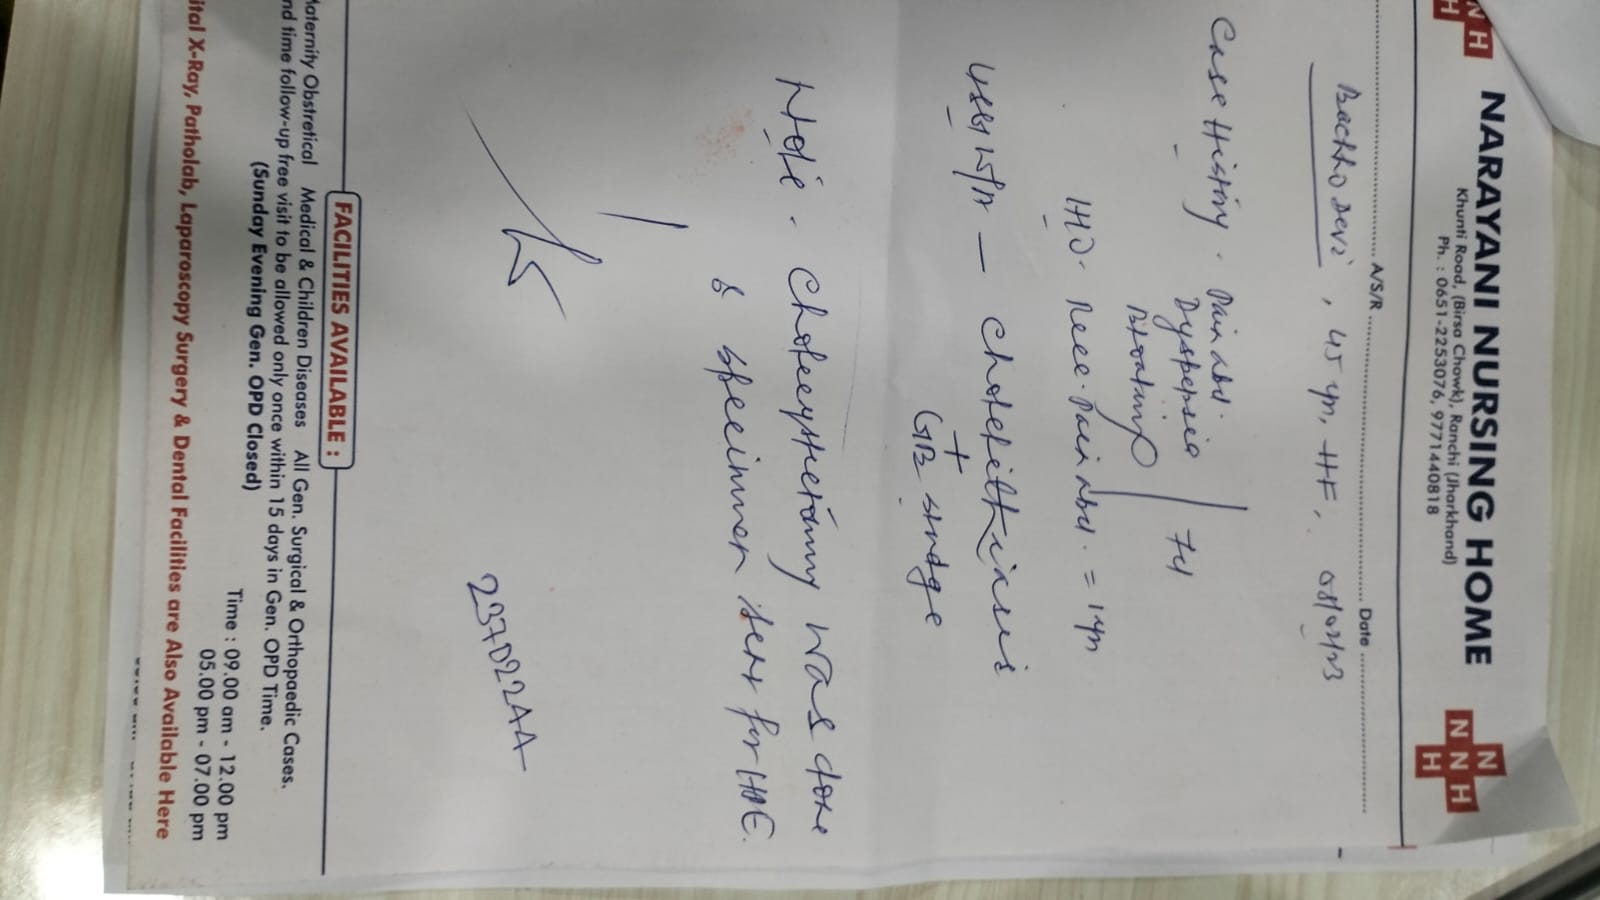 NARAYANI NURSING HOME
Khunti Road, (Birsa Chowk), Ranchi (Jharkhand)
Ph. : 0651-2253076, 9771440818
N H
H
N
N N H
H
A/S/R Date
Bachho Devi, 45 yrs, HF,
Case History - Pain abd.
Dyspepsia
Bloating
7d
H/O - Rece. Pain abd. = 1yr
USG W/A — Cholelithiasis
+
GB sludge
Note - Cholecystectomy was done
& specimen sent for HPE.
237022AA
FACILITIES AVAILABLE :
Maternity Obstretical Medical & Children Diseases All Gen. Surgical & Orthopaedic Cases.
nd time follow-up free visit to be allowed only once within 15 days in Gen. OPD Time.
(Sunday Evening Gen. OPD Closed)
Time : 09.00 am - 12.00 pm
05.00 pm - 07.00 pm
ital X-Ray, Patholab, Laparoscopy Surgery & Dental Facilities are Also Available Here